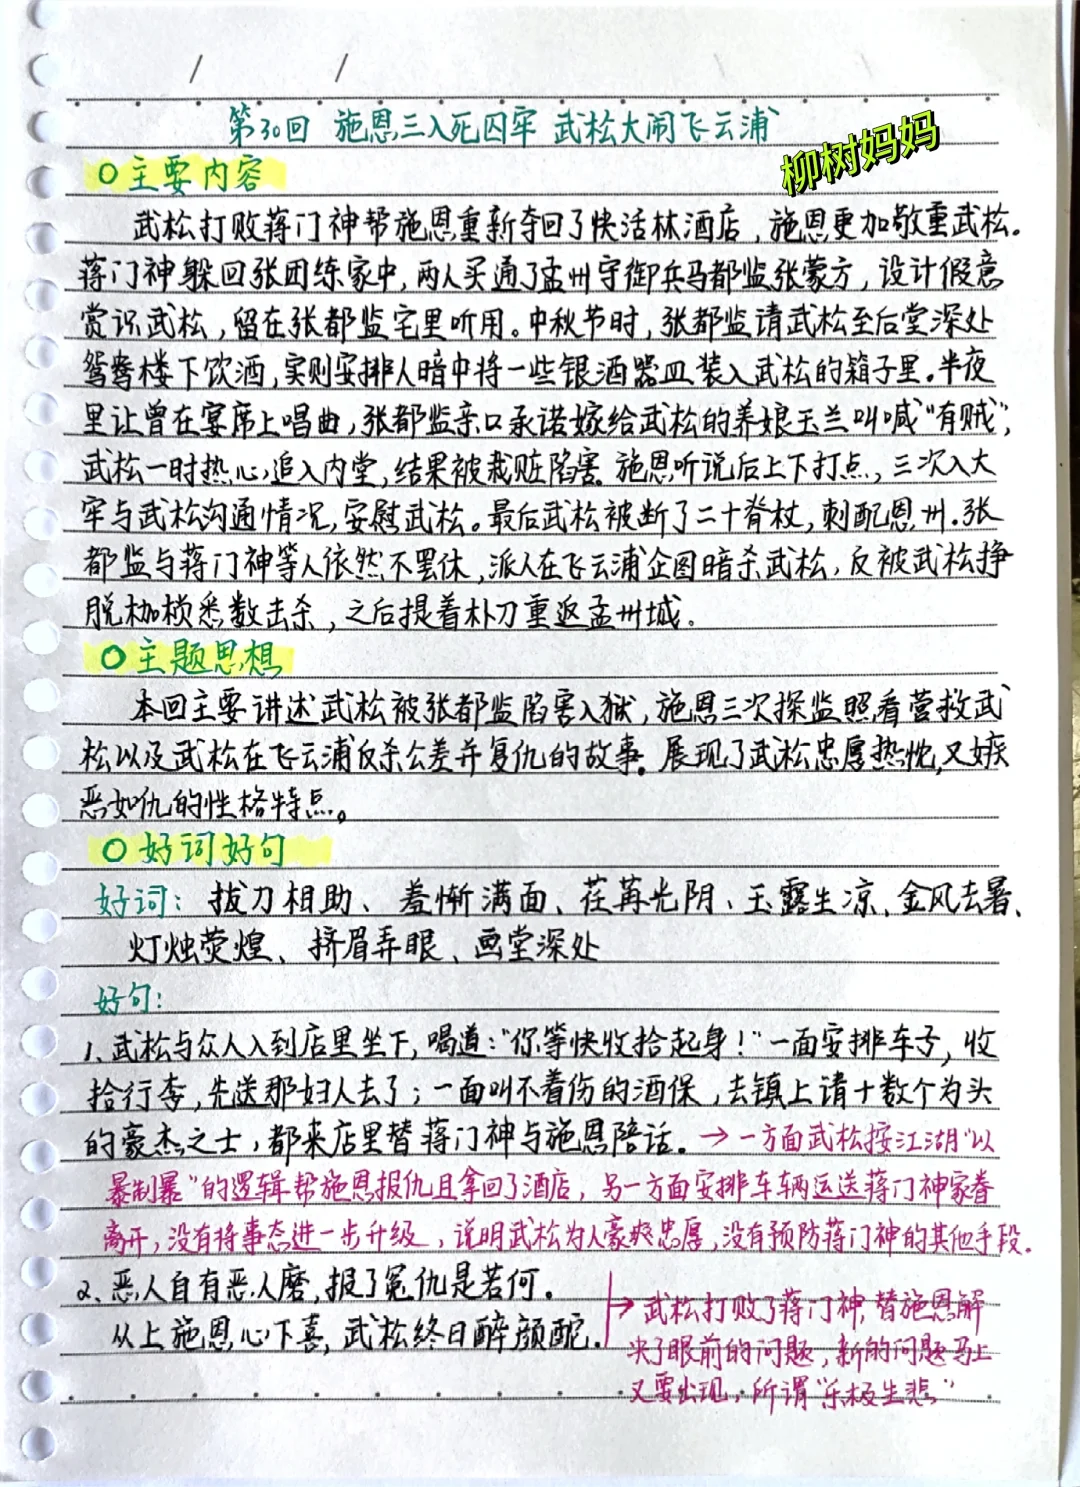 第30回 施恩三入死囚牢 武松大闹飞云浦
柳树妈妈
主要内容
武松打败蒋门神帮施恩重新夺回了快活林酒店，施恩更加敬重武松。
蒋门神躲回张团练家中，两人买通了孟州守御兵马都监张蒙方，设计假意
赏识武松，留在张都监宅里听用。中秋节时，张都监请武松至后堂深处
鸳鸯楼下饮酒，实则安排人暗中将一些银酒器皿装入武松的箱子里。半夜
里让曾在宴席上唱曲，张都监亲口承诺嫁给武松的养娘玉兰叫喊“有贼”，
武松一时热心追入内堂，结果被栽赃陷害。施恩听说后上下打点，三次入大
牢与武松沟通情况，安慰武松。最后武松被断了二十脊杖，刺配恩州。张
都监与蒋门神等人依然不罢休，派人在飞云浦企图暗杀武松，反被武松挣
脱枷锁悉数击杀，之后提着朴刀重返孟州城。
主题思想
本回主要讲述武松被张都监陷害入狱，施恩三次探监照看营救武
松以及武松在飞云浦反杀公差并复仇的故事。展现了武松忠厚热忱，又嫉
恶如仇的性格特点。
好词好句
好词：拔刀相助、羞惭满面、荏苒光阴、玉露生凉、金风去暑、
灯烛荧煌、挤眉弄眼、画堂深处
好句：
1、武松与众人入到店里坐下，喝道：“你等快收拾起身！”一面安排车子，收
拾行李，先送那妇人去了；一面叫不着伤的酒保，去镇上请十数个为头
的豪杰之士，都来店里替蒋门神与施恩陪话。→一方面武松按江湖“以
暴制暴”的逻辑帮施恩报仇且拿回了酒店，另一方面安排车辆运送蒋门神家眷
离开，没有将事态进一步升级，说明武松为人豪爽忠厚，没有预防蒋门神的其他手段。
2、恶人自有恶人磨，报了冤仇是若何。
从上施恩心下喜，武松终日醉颜酡。
→武松打败了蒋门神，替施恩解
决了眼前的问题，新的问题马上
又要出现，所谓“乐极生悲”